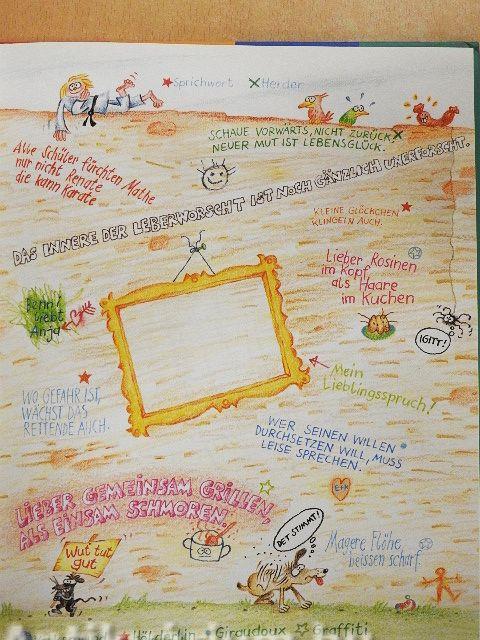 Sprichwort Herder
SCHAUE VORWÄRTS, NICHT ZURÜCK,
NEUER MUT IST LEBENSGLÜCK.
Alle Schüler fürchten Mathe
nur nicht Renate
die kann Karate
DAS INNERE DER LEBERWORSCHT IST NOCH GÄNZLICH UNERFORSCHT.
KLEINE GLÖCKCHEN
KLINGELN AUCH.
Lieber Rosinen
im Kopf,
als Haare
im Kuchen
Benni
liebt
Anja
IGITT!
Mein
Lieblingsspruch!
WO GEFAHR IST,
WÄCHST DAS
RETTENDE AUCH.
WER SEINEN WILLEN
DURCHSETZEN WILL, MUSS
LEISE SPRECHEN.
E+K
LIEBER GEMEINSAM GRILLEN,
ALS EINSAM SCHMOREN.
DET STIMMT!
Magere Flöhe
beissen scharf.
Wut tut
gut
Hölderlin Giraudoux Graffiti